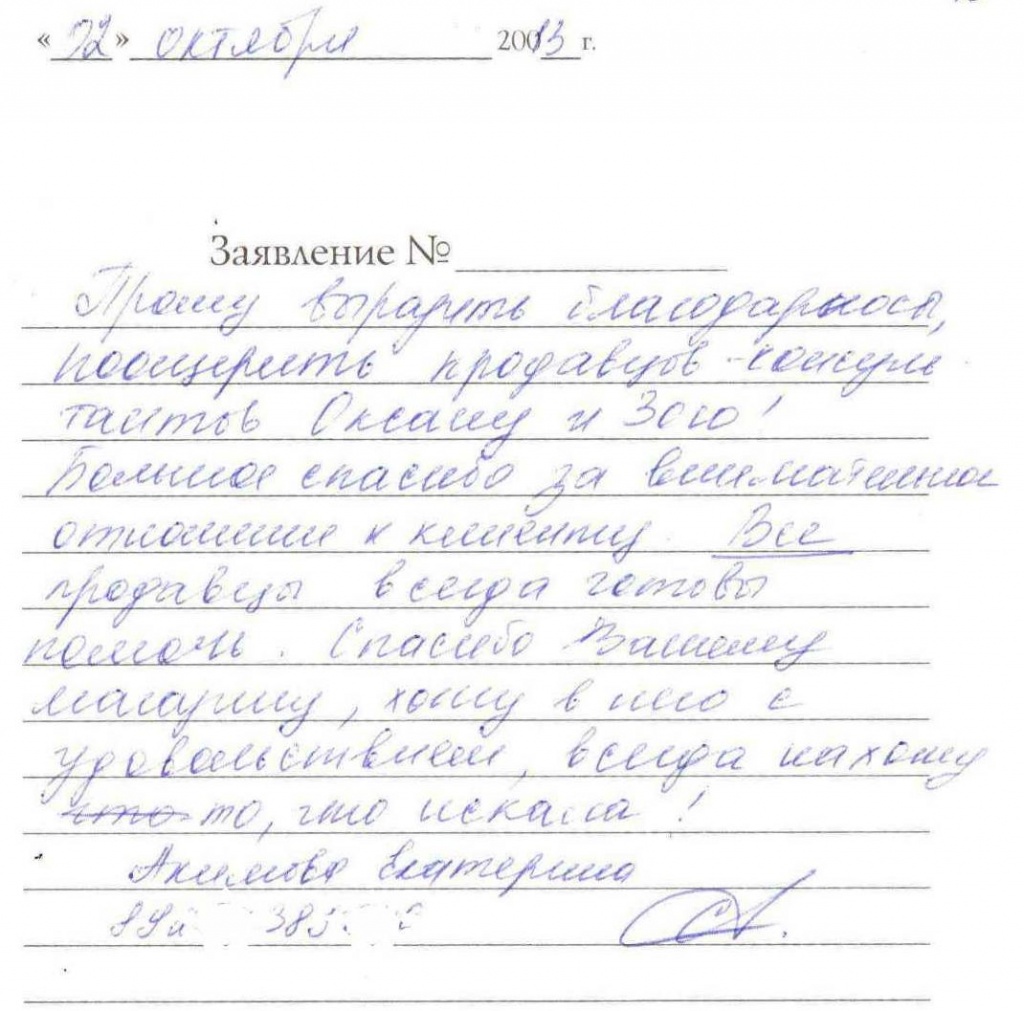 «22» октября 2013 г.
Заявление №
Прошу выразить благодарность,
поощерить продавцов-консуль
тантов Оксану и Зою!
Большое спасибо за внимательное
отношение к клиенту. Все
продавцы всегда готовы
помочь. Спасибо Вашему
магазину, хожу в него с
удовольствием, всегда нахожу
что то, что искала!
Акимова Екатерина
385